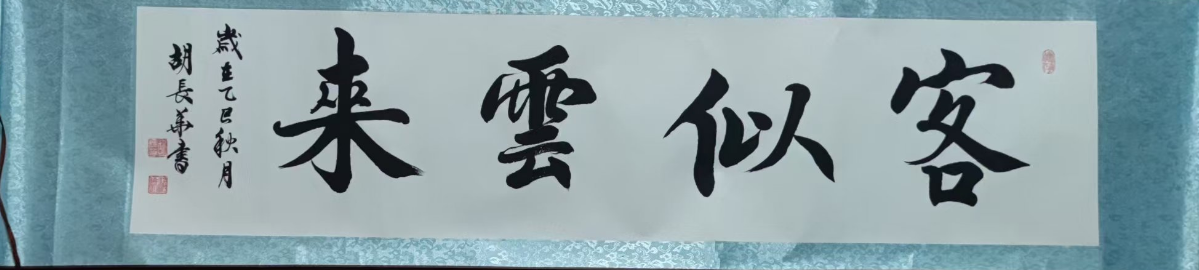 客似雲來
歲在乙巳秋月
胡長華書